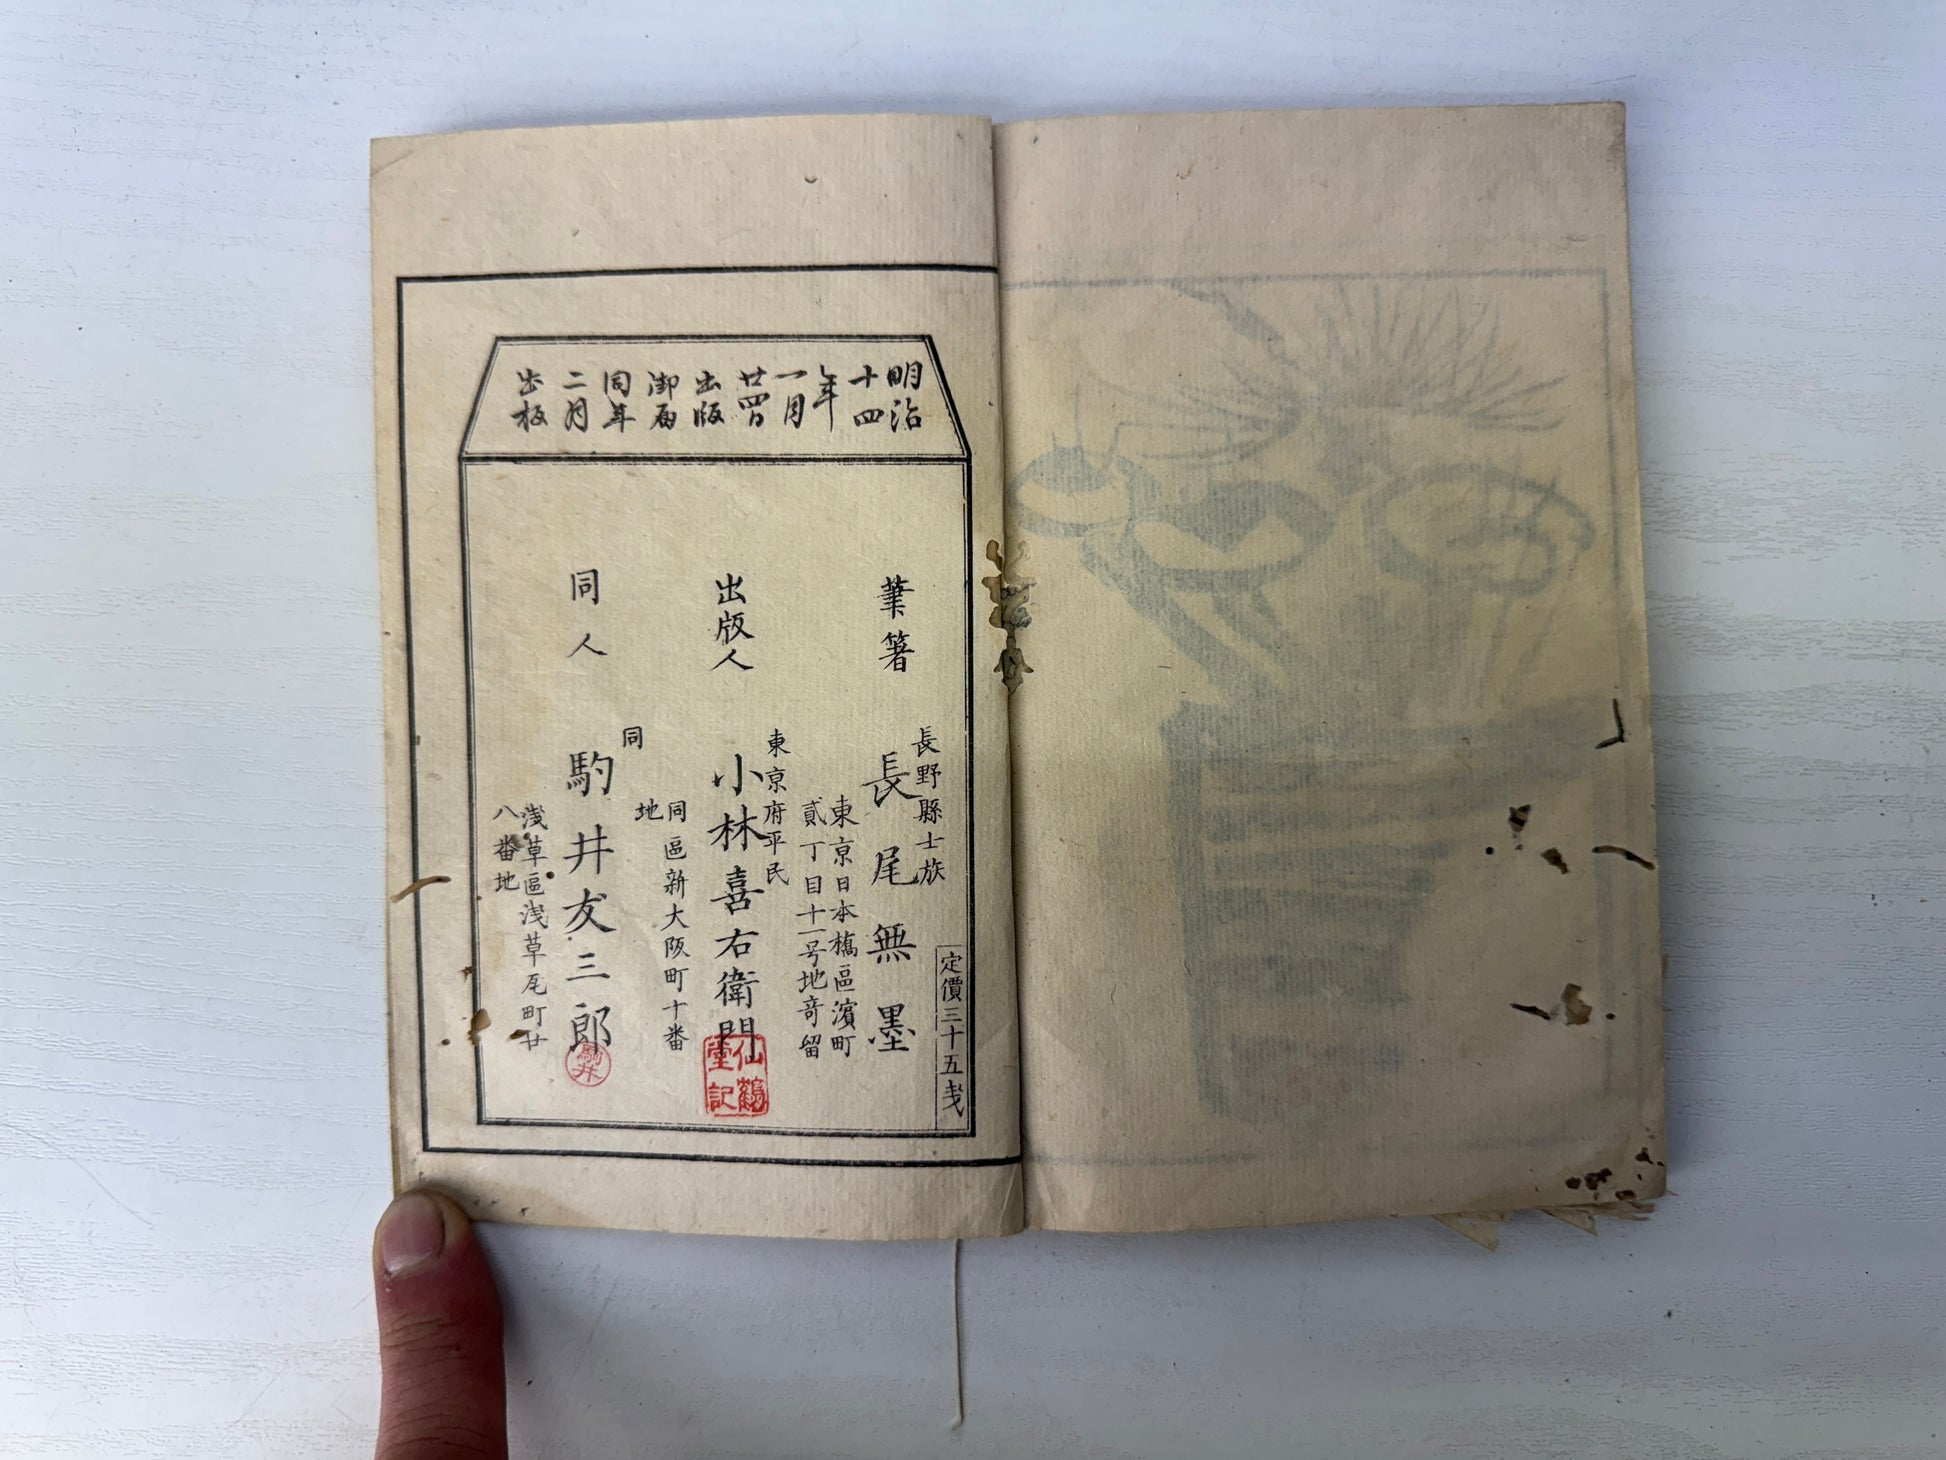 明治
十四
年
一月
廿四日
出版
御届
同年
二月
出板
定價三十五戋
筆著
長野縣士族
長尾無墨
東京日本橋區濱町
貳丁目十一号地竒留
出版人
東京府平民
小林喜右衛門
同區新大阪町十番
地
同人
同
駒井友三郎
淺草區淺草瓦町廿
八番地
仙鶴
堂記
駒井